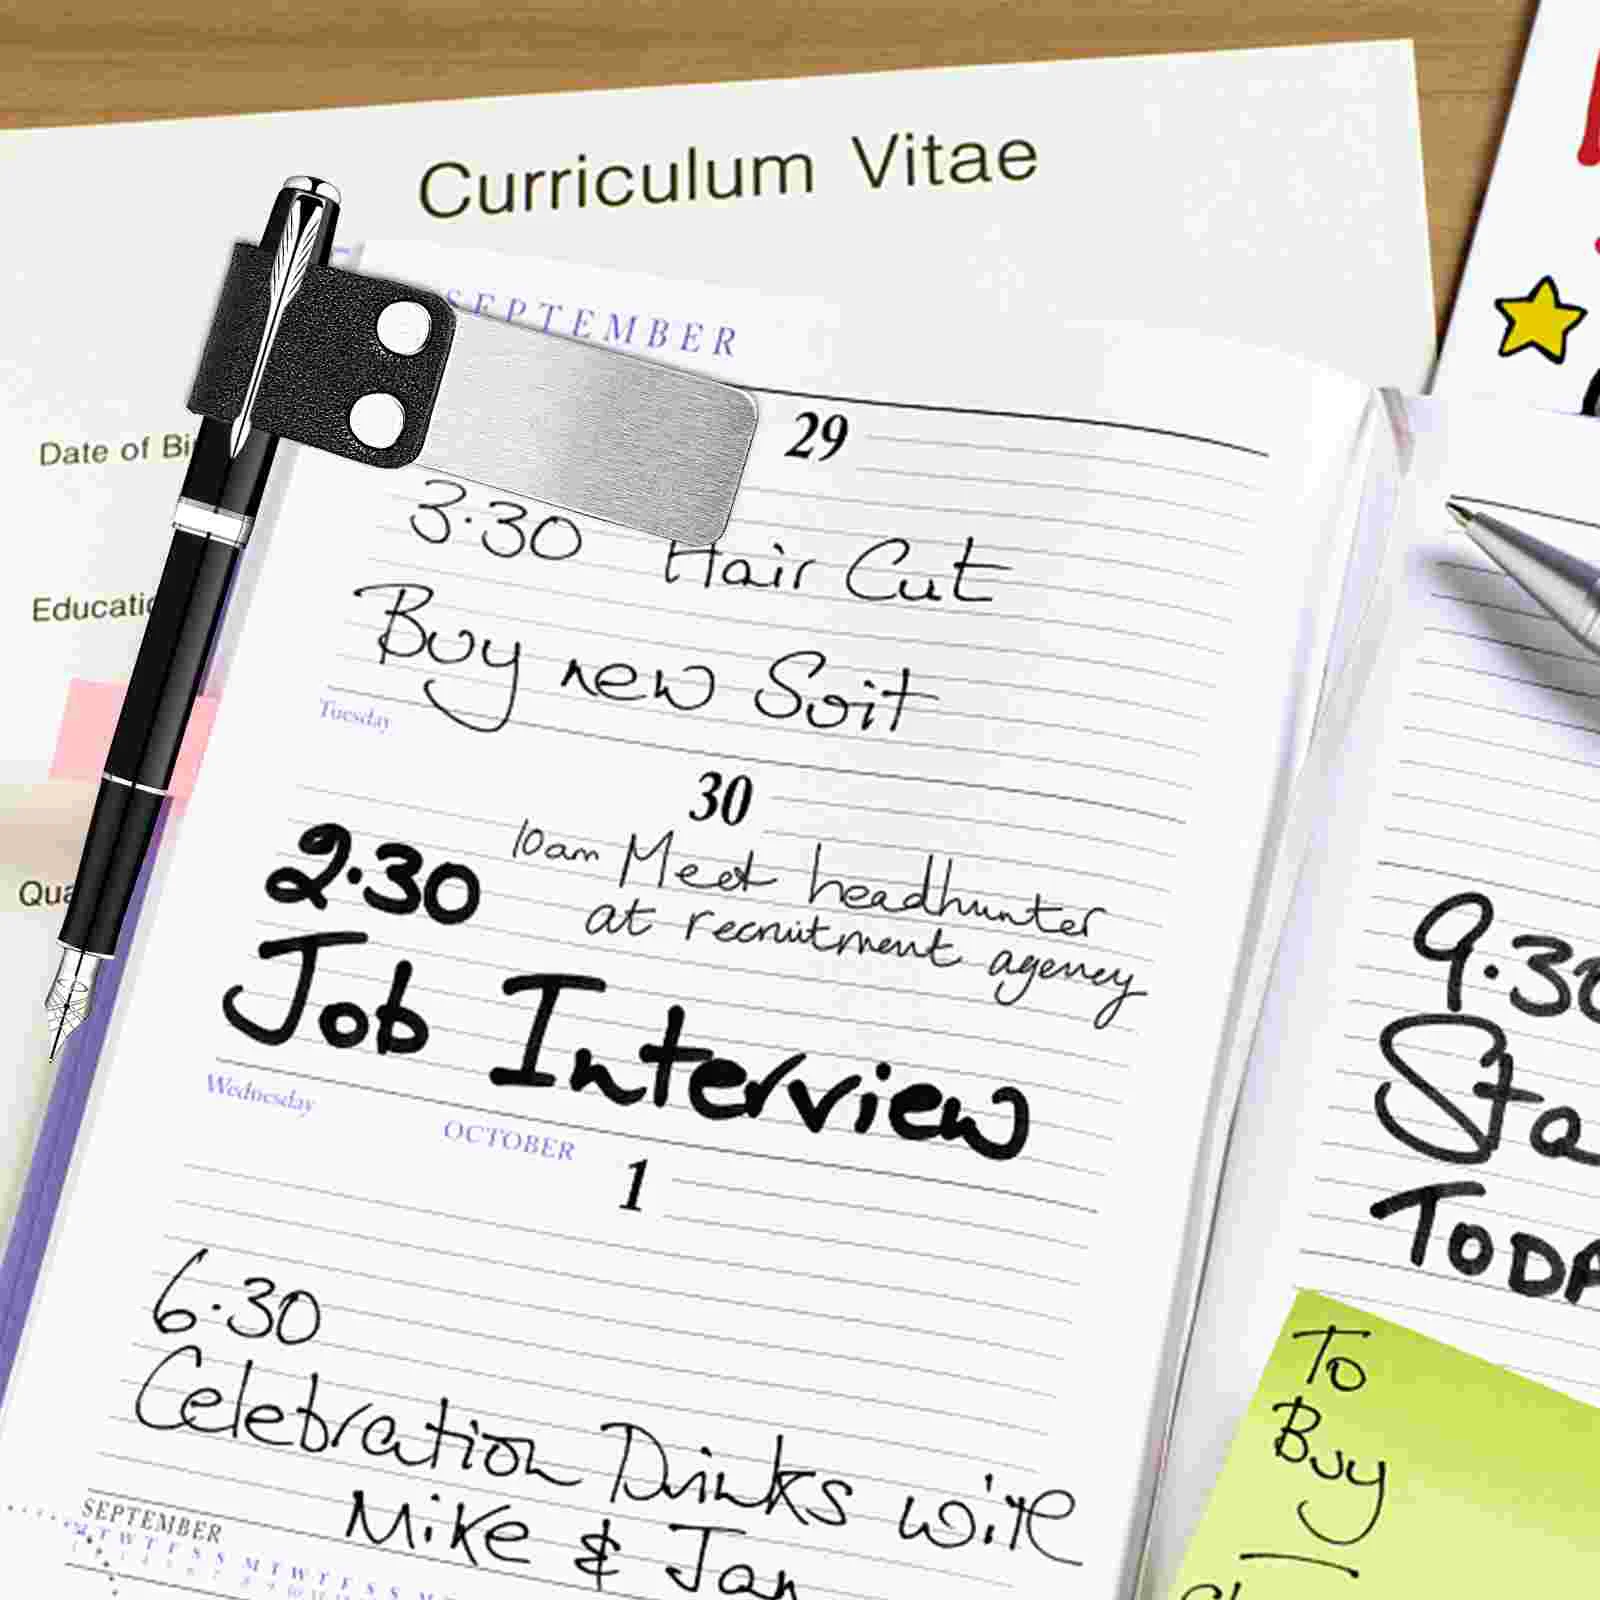 Curriculum Vitae
SEPTEMBER
Date of Bi
Educatio
Qua
29
3.30 Hair Cut
Buy new Suit
Tuesday
30
10am Meet headhunter
at recruitment agency
2.30
Job Interview
Wednesday
OCTOBER
1
6.30
Celebration Drinks with
Mike & Jan
SEPTEMBER
M T W T F S S M T W T F S S M
9.30
Sta
TODA
To
Buy